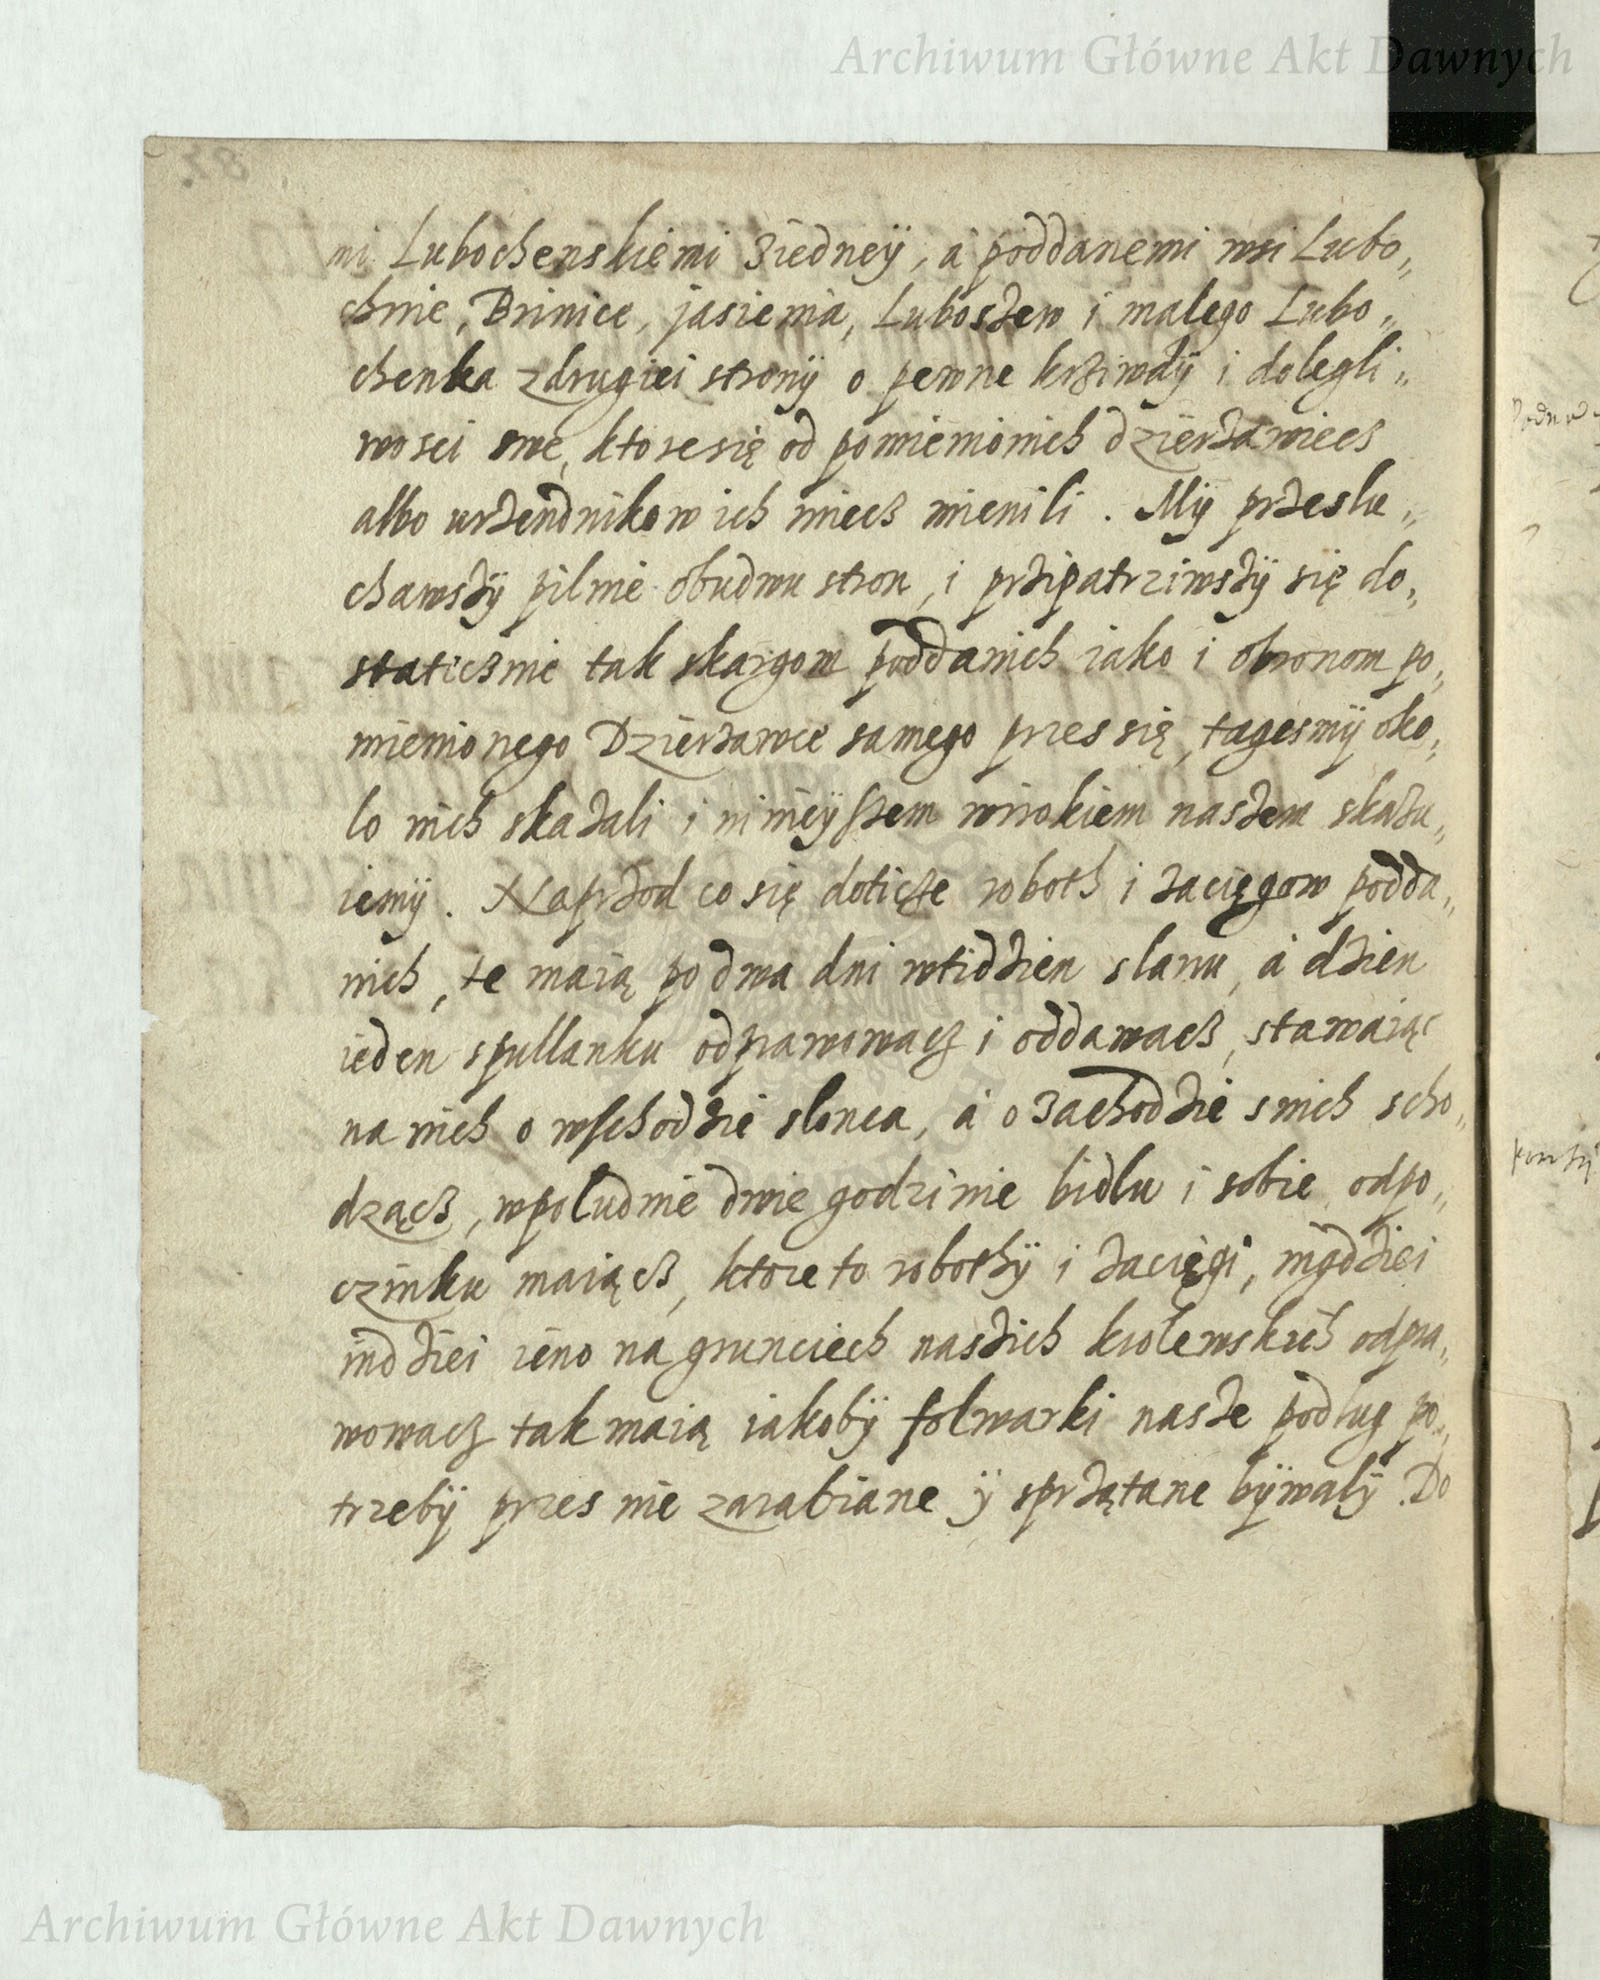 Archiwum Główne Akt Dawnych
ni Lubochenskiemi Ziedneÿ, a poddanemi wsi Lubo„
chnie, Brinice, jasienia, Luboszew i malego Lubo„
chenka zdrugiei stronÿ o pewne krziwdÿ i dolegli„
wosci swe, ktore się od pomienionich dzierżawiecz
albo urzendnikow ich miecz mienili. Mÿ przeslu„
chawszÿ pilnie obudwu stron, i przipatrziwszÿ się do„
staticznie tak skargom poddanich iako i obronom po„
mienionego Dzierżawce samego przes się, tagesmÿ oko„
lo nich skazali i ninieÿszem wirokiem naszem skazu„
iemÿ. Naprzod co się doticze roboth i zaciągow podda„
nich, te maią po dwa dni wtidzien slanu, a dzien
ieden spullanku odprawowacz i oddawacz, stawaiąc
na nich o wschodzie slonca, a o Zachodzie snich scho„
dzącz, wpoludnie dwie godzinie bidlu i sobie odpo„
czinku maiącz, ktore to robothÿ i zacięgi, nigdziei
indziei ieno na grunciech naszich krolewskich odpra„
wowacz tak maią iakobÿ folwarki nasze podlug po„
trzebÿ przes nie zarabiane ÿ sprzątane bÿwalÿ. Do
Archiwum Główne Akt Dawnych